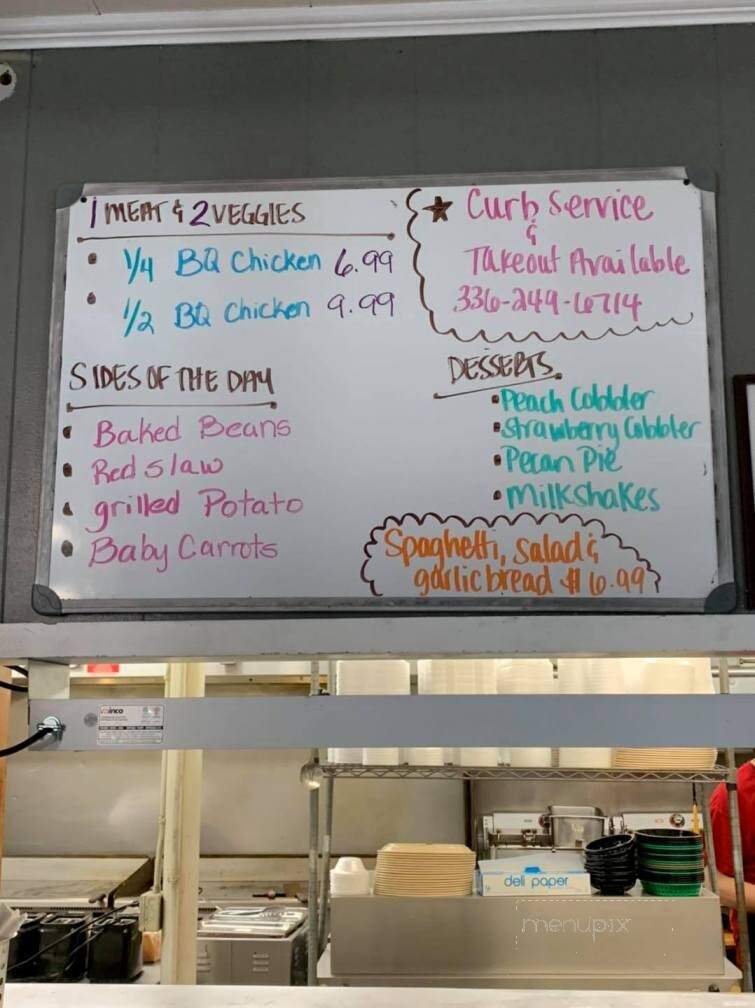 1 MEAT & 2 VEGGIES
• 1/4 BQ Chicken 6.99
• 1/2 BQ Chicken 9.99
★ Curb Service
&
Takeout Available
336-249-6714
SIDES OF THE DAY
• Baked Beans
• Red slaw
• grilled Potato
• Baby Carrots
DESSERTS
• Peach Cobbler
• Strawberry Cobbler
• Pecan Pie
• Milkshakes
Spaghetti, salad &
garlic bread $6.99
deli paper
menupix